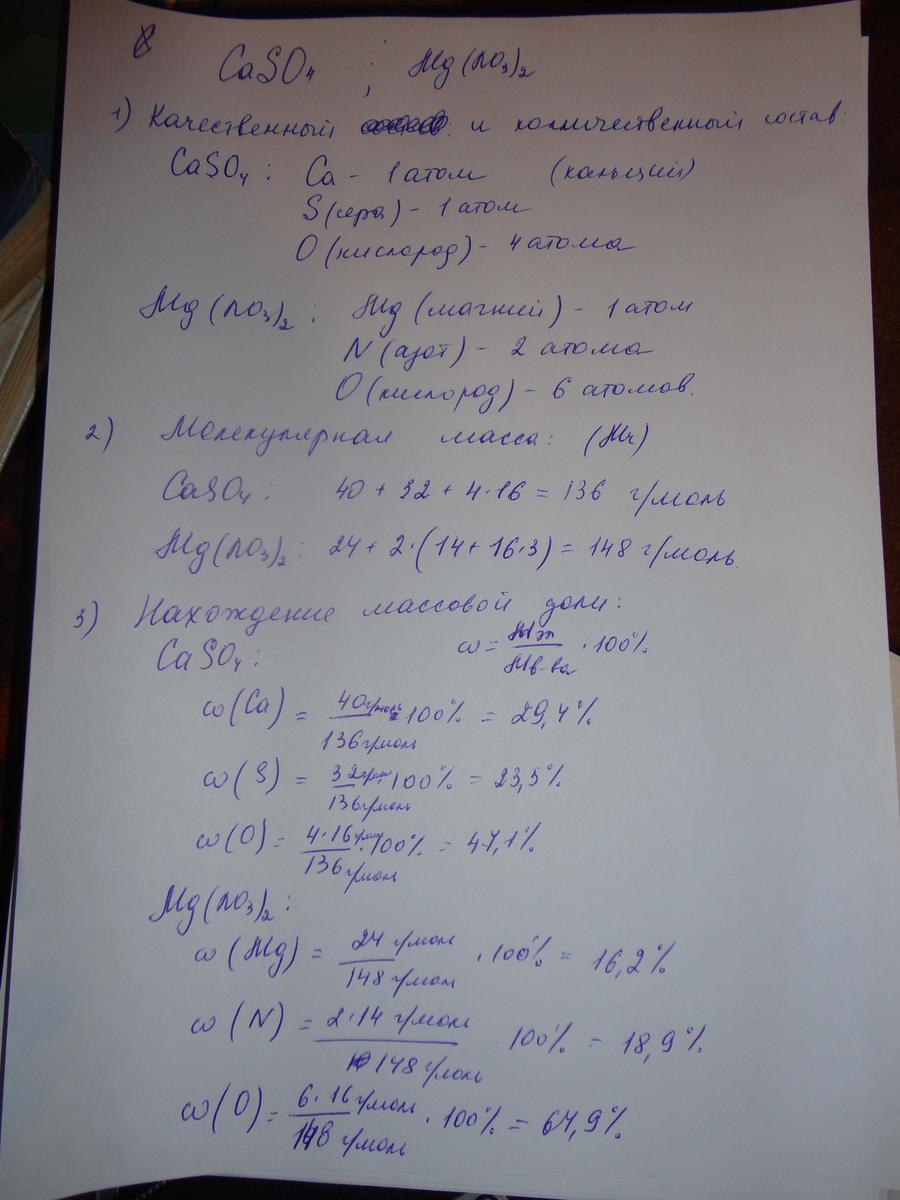 CaSO₄ ; Mg(NO₃)₂
1) Качественный и количественный состав:
CaSO₄ : Ca - 1 атом (кальций)
S (сера) - 1 атом
O (кислород) - 4 атома
Mg(NO₃)₂ : Mg (магний) - 1 атом
N (азот) - 2 атома
O (кислород) - 6 атомов.
2) Молекулярная масса: (Mr)
CaSO₄ : 40 + 32 + 4·16 = 136 г/моль
Mg(NO₃)₂ : 24 + 2·(14 + 16·3) = 148 г/моль.
3) Нахождение массовой доли:
CaSO₄ : ω = Mэл / Mв-ва · 100%
ω(Ca) = 40 г/моль / 136 г/моль · 100% = 29,4%
ω(S) = 32 г/моль / 136 г/моль · 100% = 23,5%
ω(O) = 4·16 г/моль / 136 г/моль · 100% = 47,1%
Mg(NO₃)₂ :
ω(Mg) = 24 г/моль / 148 г/моль · 100% = 16,2%
ω(N) = 2·14 г/моль / 148 г/моль · 100% = 18,9%
ω(O) = 6·16 г/моль / 148 г/моль · 100% = 64,9%